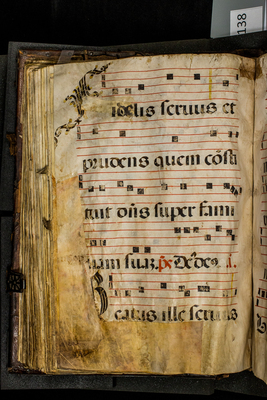 138
Fidelis seruus et
prudens quem cōsti
tuit dn̄s super fami
liam suaꝫ. ps Ds̄ des. i.
Beatus ille seruus